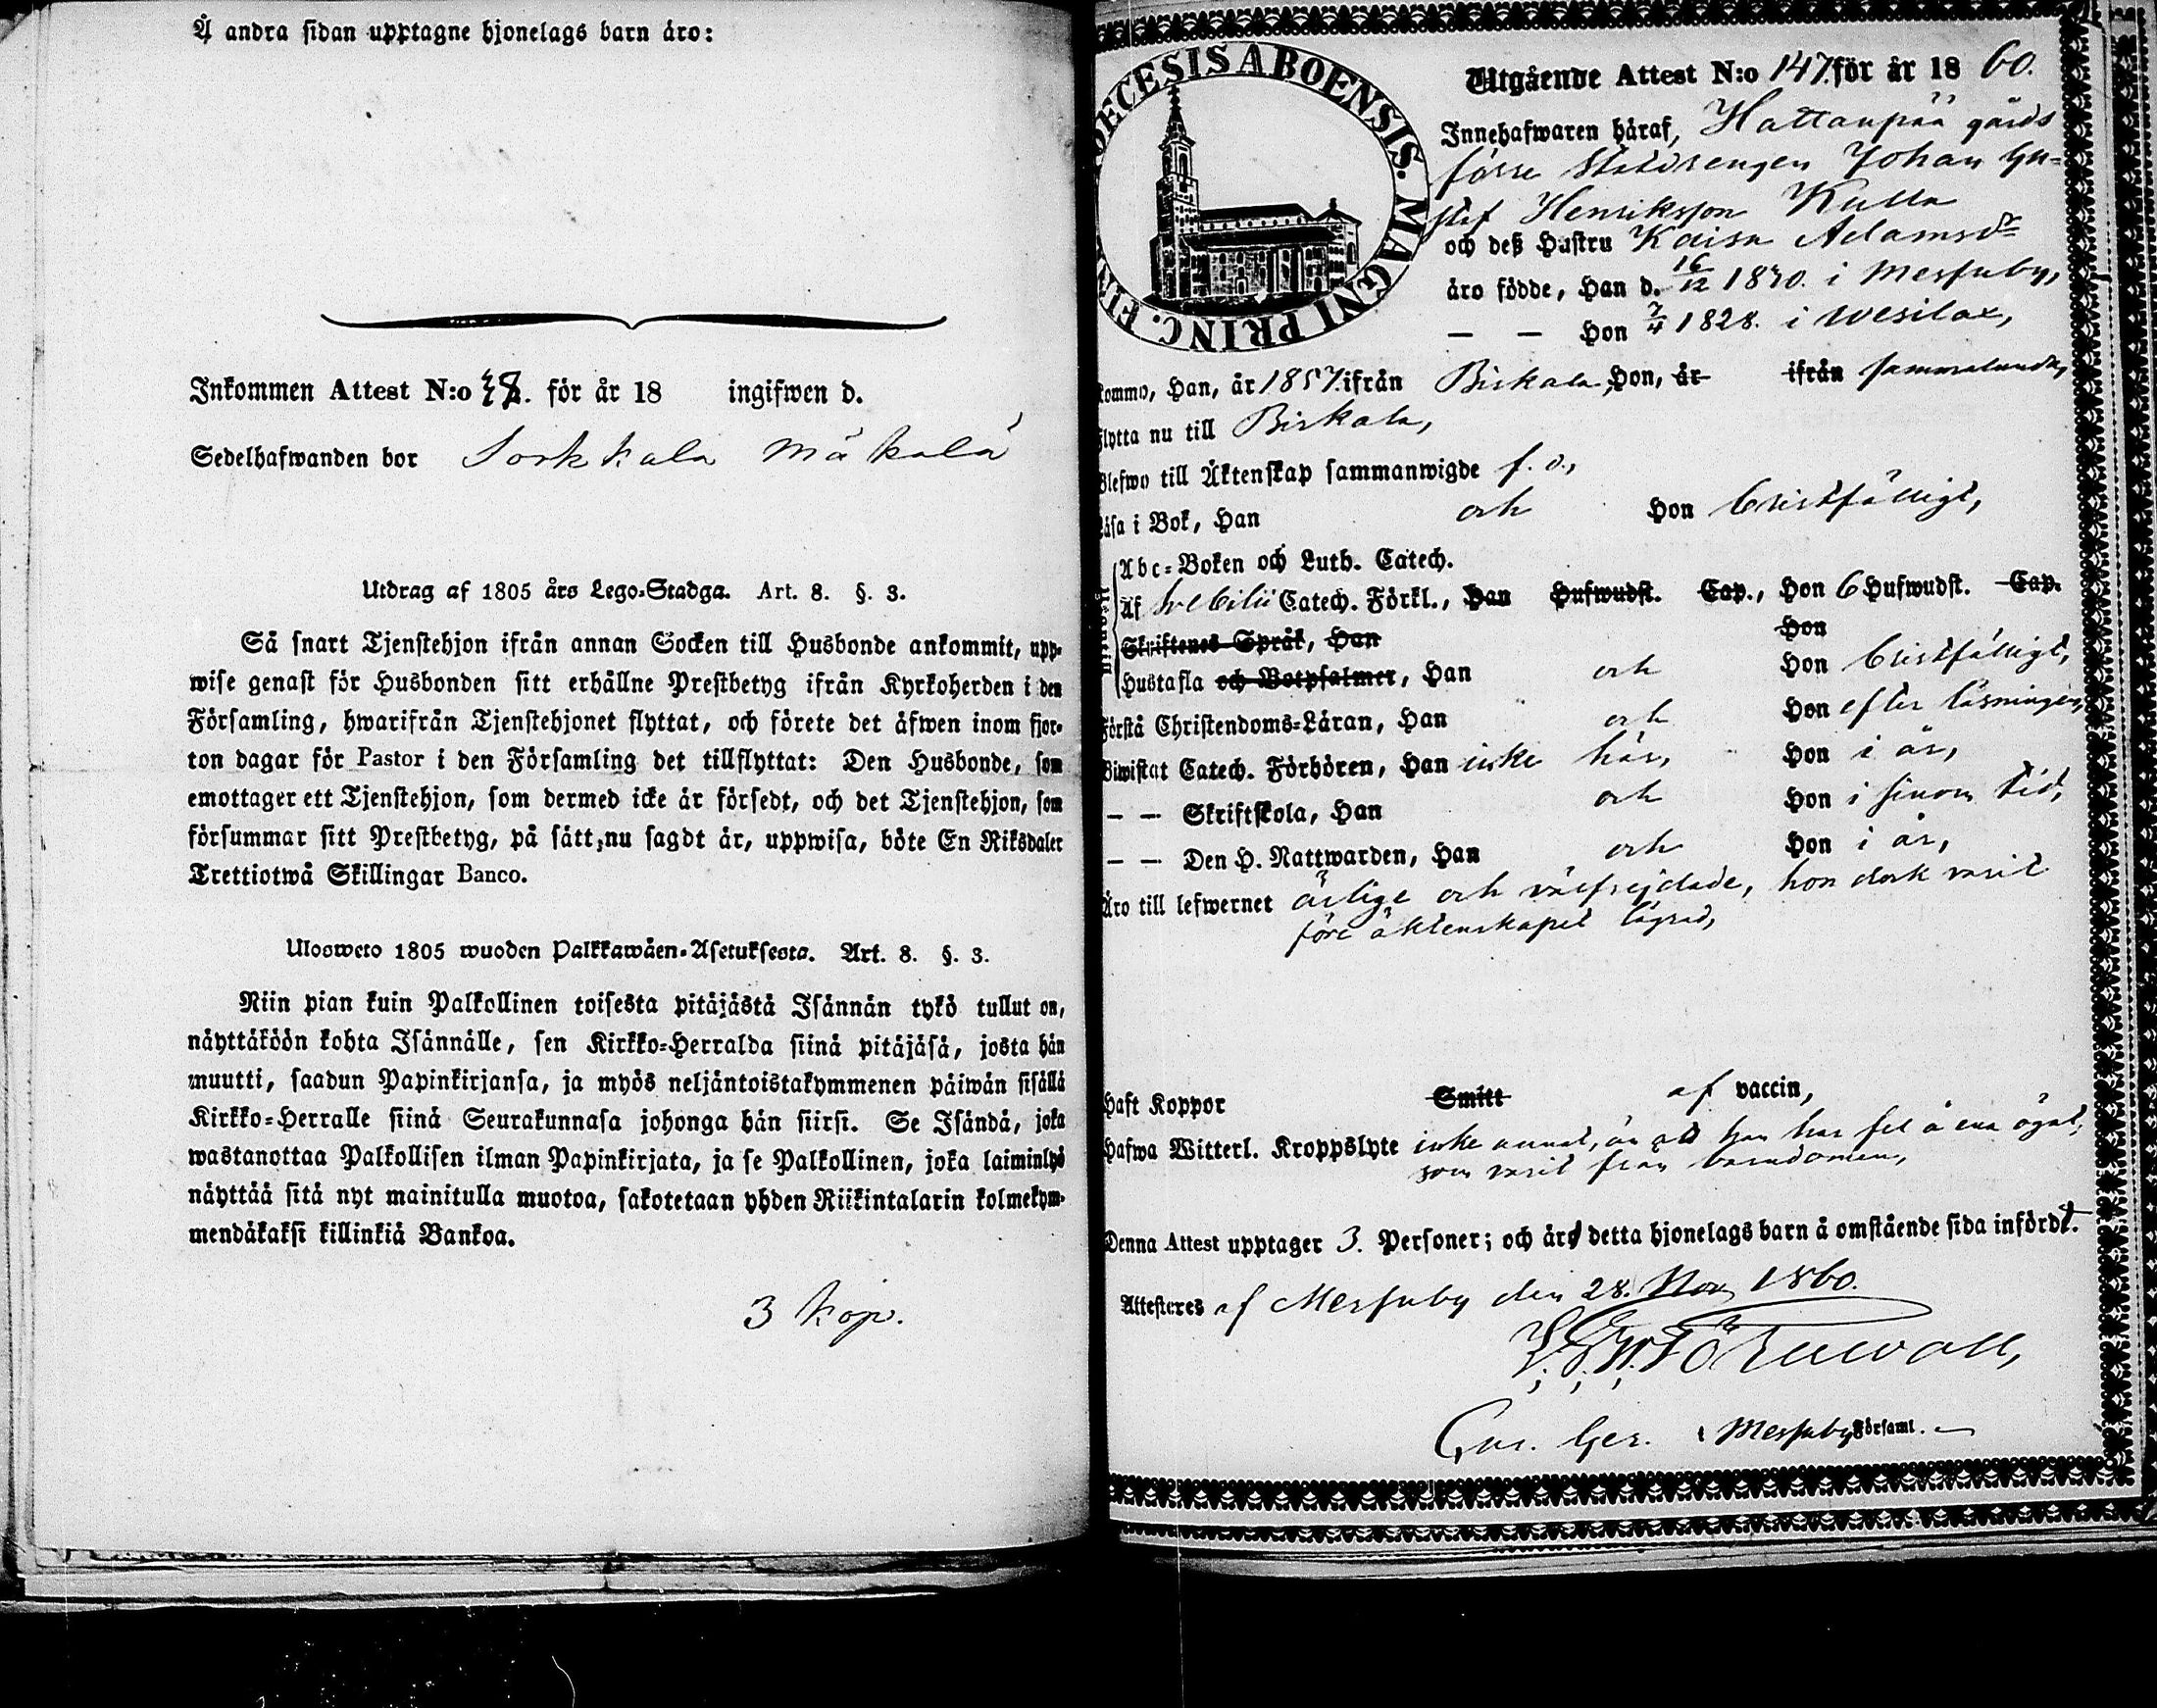 Å andra sidan upptagne hjonelags barn äro:
Inkommen Attest N:o 48. för år 18 ingifwen d.
Sedelhafwanden bor Sorkkala Mäkälä
Utdrag af 1805 års Lego-Stadga. Art. 8. §. 3.
Så snart Tjenstehjon ifrån annan Socken till Husbonde ankommit, upp-
wise genast för Husbonden sitt erhållne Prestbetyg ifrån Kyrkoherden i den
Församling, hwarifrån Tjenstehjonet flyttat, och förete det äfwen inom fjor-
ton dagar för Pastor i den Församling det tillflyttat: Den Husbonde, som
emottager ett Tjenstehjon, som dermed icke är försedt, och det Tjenstehjon, som
försummar sitt Prestbetyg, på sätt, nu sagdt är, uppwisa, böte En Riksdaler
Trettiotwå Skillingar Banco.
Ulosweto 1805 wuoden Palkkawäen-Asetuksesta. Art. 8. §. 3.
Niin pian kuin Palkollinen toisesta pitäjästä Isännän tykö tullut on,
näyttäköön kohta Isännälle, sen Kirkko-Herralda siinä pitäjäsä, josta hän
muutti, saadun Papinkirjansa, ja myös neljäntoistakymmenen päiwän sisällä
Kirkko-Herralle siinä Seurakunnasa johonga hän siirsi. Se Isändä, joka
wastanottaa Palkollisen ilman Papinkirjata, ja se Palkollinen, joka laiminlyö
näyttää sitä nyt mainitulla muotoa, sakotetaan yhden Riikintalarin kolmekym-
mendäkaksi killinkiä Bankoa.
3 kop.
DIOECESIS ABOENSIS. MAGNI PRINC. FIN
Utgående Attest N:o 147. för år 1860.
Innehafwaren häraf, Hattanpää gårds
förre Statdrengen Johan Gu-
staf Henriksson Kulla
och deß Hustru Kaisa Adamsdr
äro födde, Han d. 16/12 1830. i Messuby,
— — Hon 7/4 1828. i Wesilax,
kommo, Han, år 1857. ifrån Birkala, Hon, år ifrån sammalunda,
flytta nu till Birkala,
Blefwo till Äktenskap sammanwigde f. å.,
Läsa i Bok, Han och Hon bristfälligt,
Abc-Boken och Luth. Catech.
Af Svebilii Catech. Förkl., Han Hufwudst. Cap., Hon 6 Hufwudst. Cap.
Skriftenes Språk, Han Hon
Hustafla och Botpsalmer, Han och Hon bristfälligt,
Förstå Christendoms-Läran, Han och Hon efter läsningen,
Biwistat Catech. Förhören, Han icke här, Hon i år,
— — Skriftskola, Han och Hon i sinom tid,
— — Den H. Nattwarden, Han och Hon i år,
Äro till lefwernet ärlige och välfrejdade, hon dock varit
före äktenskapet lägrad,
Haft Koppor Smitt af vaccin,
Hafwa Witterl. Kroppslyte icke annat, än att han har fel å ena ögat,
som varit från barndomen,
Denna Attest upptager 3. Personer; och är detta hjonelags barn å omstående sida infördt.
Attesteres af Messuby den 28. Nov 1860.
Församl.